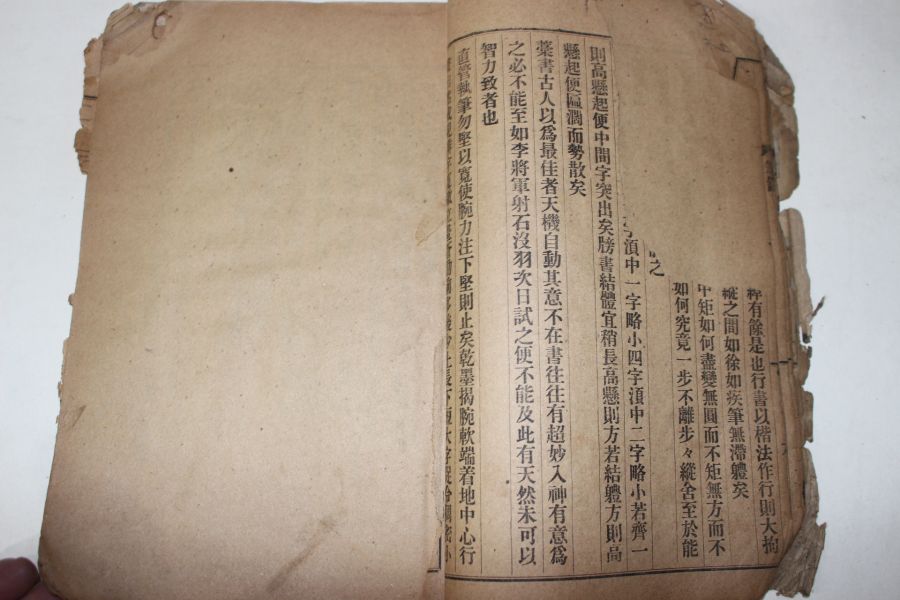 有餘是也行書以楷法作行則大拘
縱之間如徐如疾筆無滯軆矣
中矩如何盡變無圓而不矩無方而不
如何究竟一步不離步々縱舍至於能
之
湏中一字略小四字湏中二字略小若齊一
則高懸起便中間字突出矣牓書結體宜稍長高懸則方若結軆方則高
懸起便匾濶而勢散矣
藁書古人以爲最佳者天機自動其意不在書往往有超妙入神有意爲
之必不能至如李將軍射石沒羽次日試之便不能及此有天然未可以
智力致者也
直管執筆勿堅以寬使腕力注下堅則止矣乾墨揭腕軟端着地中心行